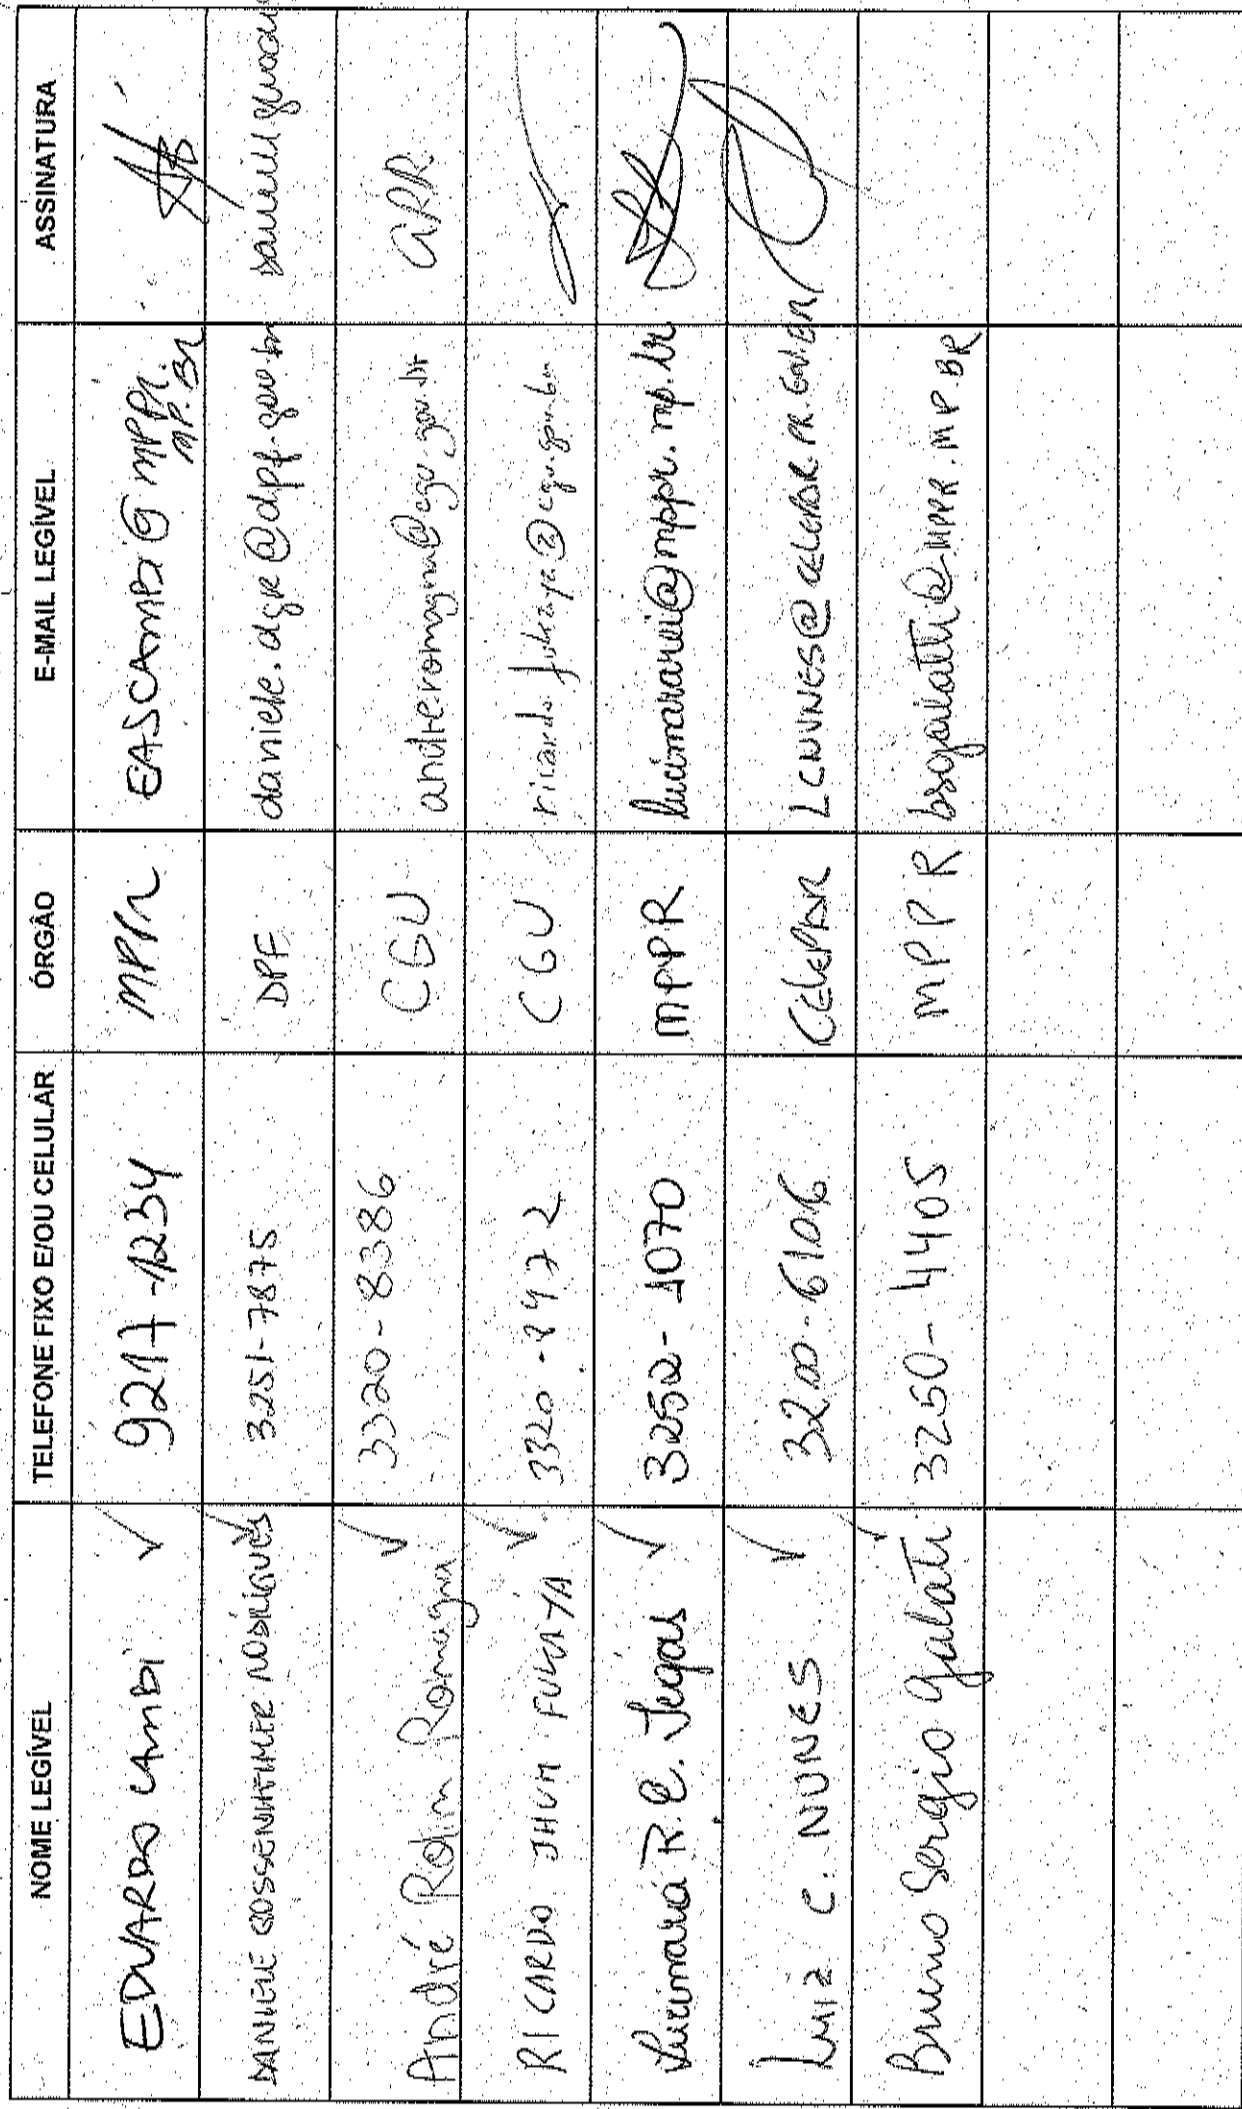 NOME LEGÍVEL TELEFONE FIXO E/OU CELULAR ÓRGÃO E-MAIL LEGÍVEL ASSINATURA
EDUARDO CAMBI ✓ 9217-1234 MPPR EASCAMBI@MPPR.MP.BR
DANIELE GOSSENHEIMER RODRIGUES ✓ 3251-7875 DPF daniele.dgr@dpf.gov.br
André Rolim Romagna ✓ 3320-8386 CGU andre.romagna@cgu.gov.br APR
RICARDO JHUM FUKAYA ✓ 3320- CGU ricardo.fukaya@cgu.gov.br
Lucimara R.C. ✓ 3252-1070 MPPR @mppr.mp.br
Luiz C. NUNES ✓ 3200-6106 CELEPAR LCNUNES@CELEPAR.PR.GOV.BR
Bruno Sergio Galatti ✓ 3250-4405 MPPR bsgalatti@MPPR.MP.BR